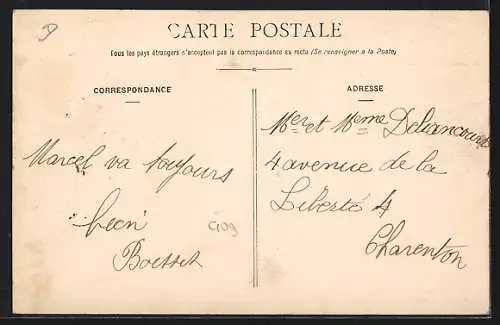 CARTE POSTALE
Tous les pays étrangers n'acceptent pas la correspondance au recto (Se renseigner à la Poste)
CORRESPONDANCE
ADRESSE
Marcel va toujours
bien
Boesset
Mer et Meme Deliancourt
4 avenue de la
Liberté 4
Charenton